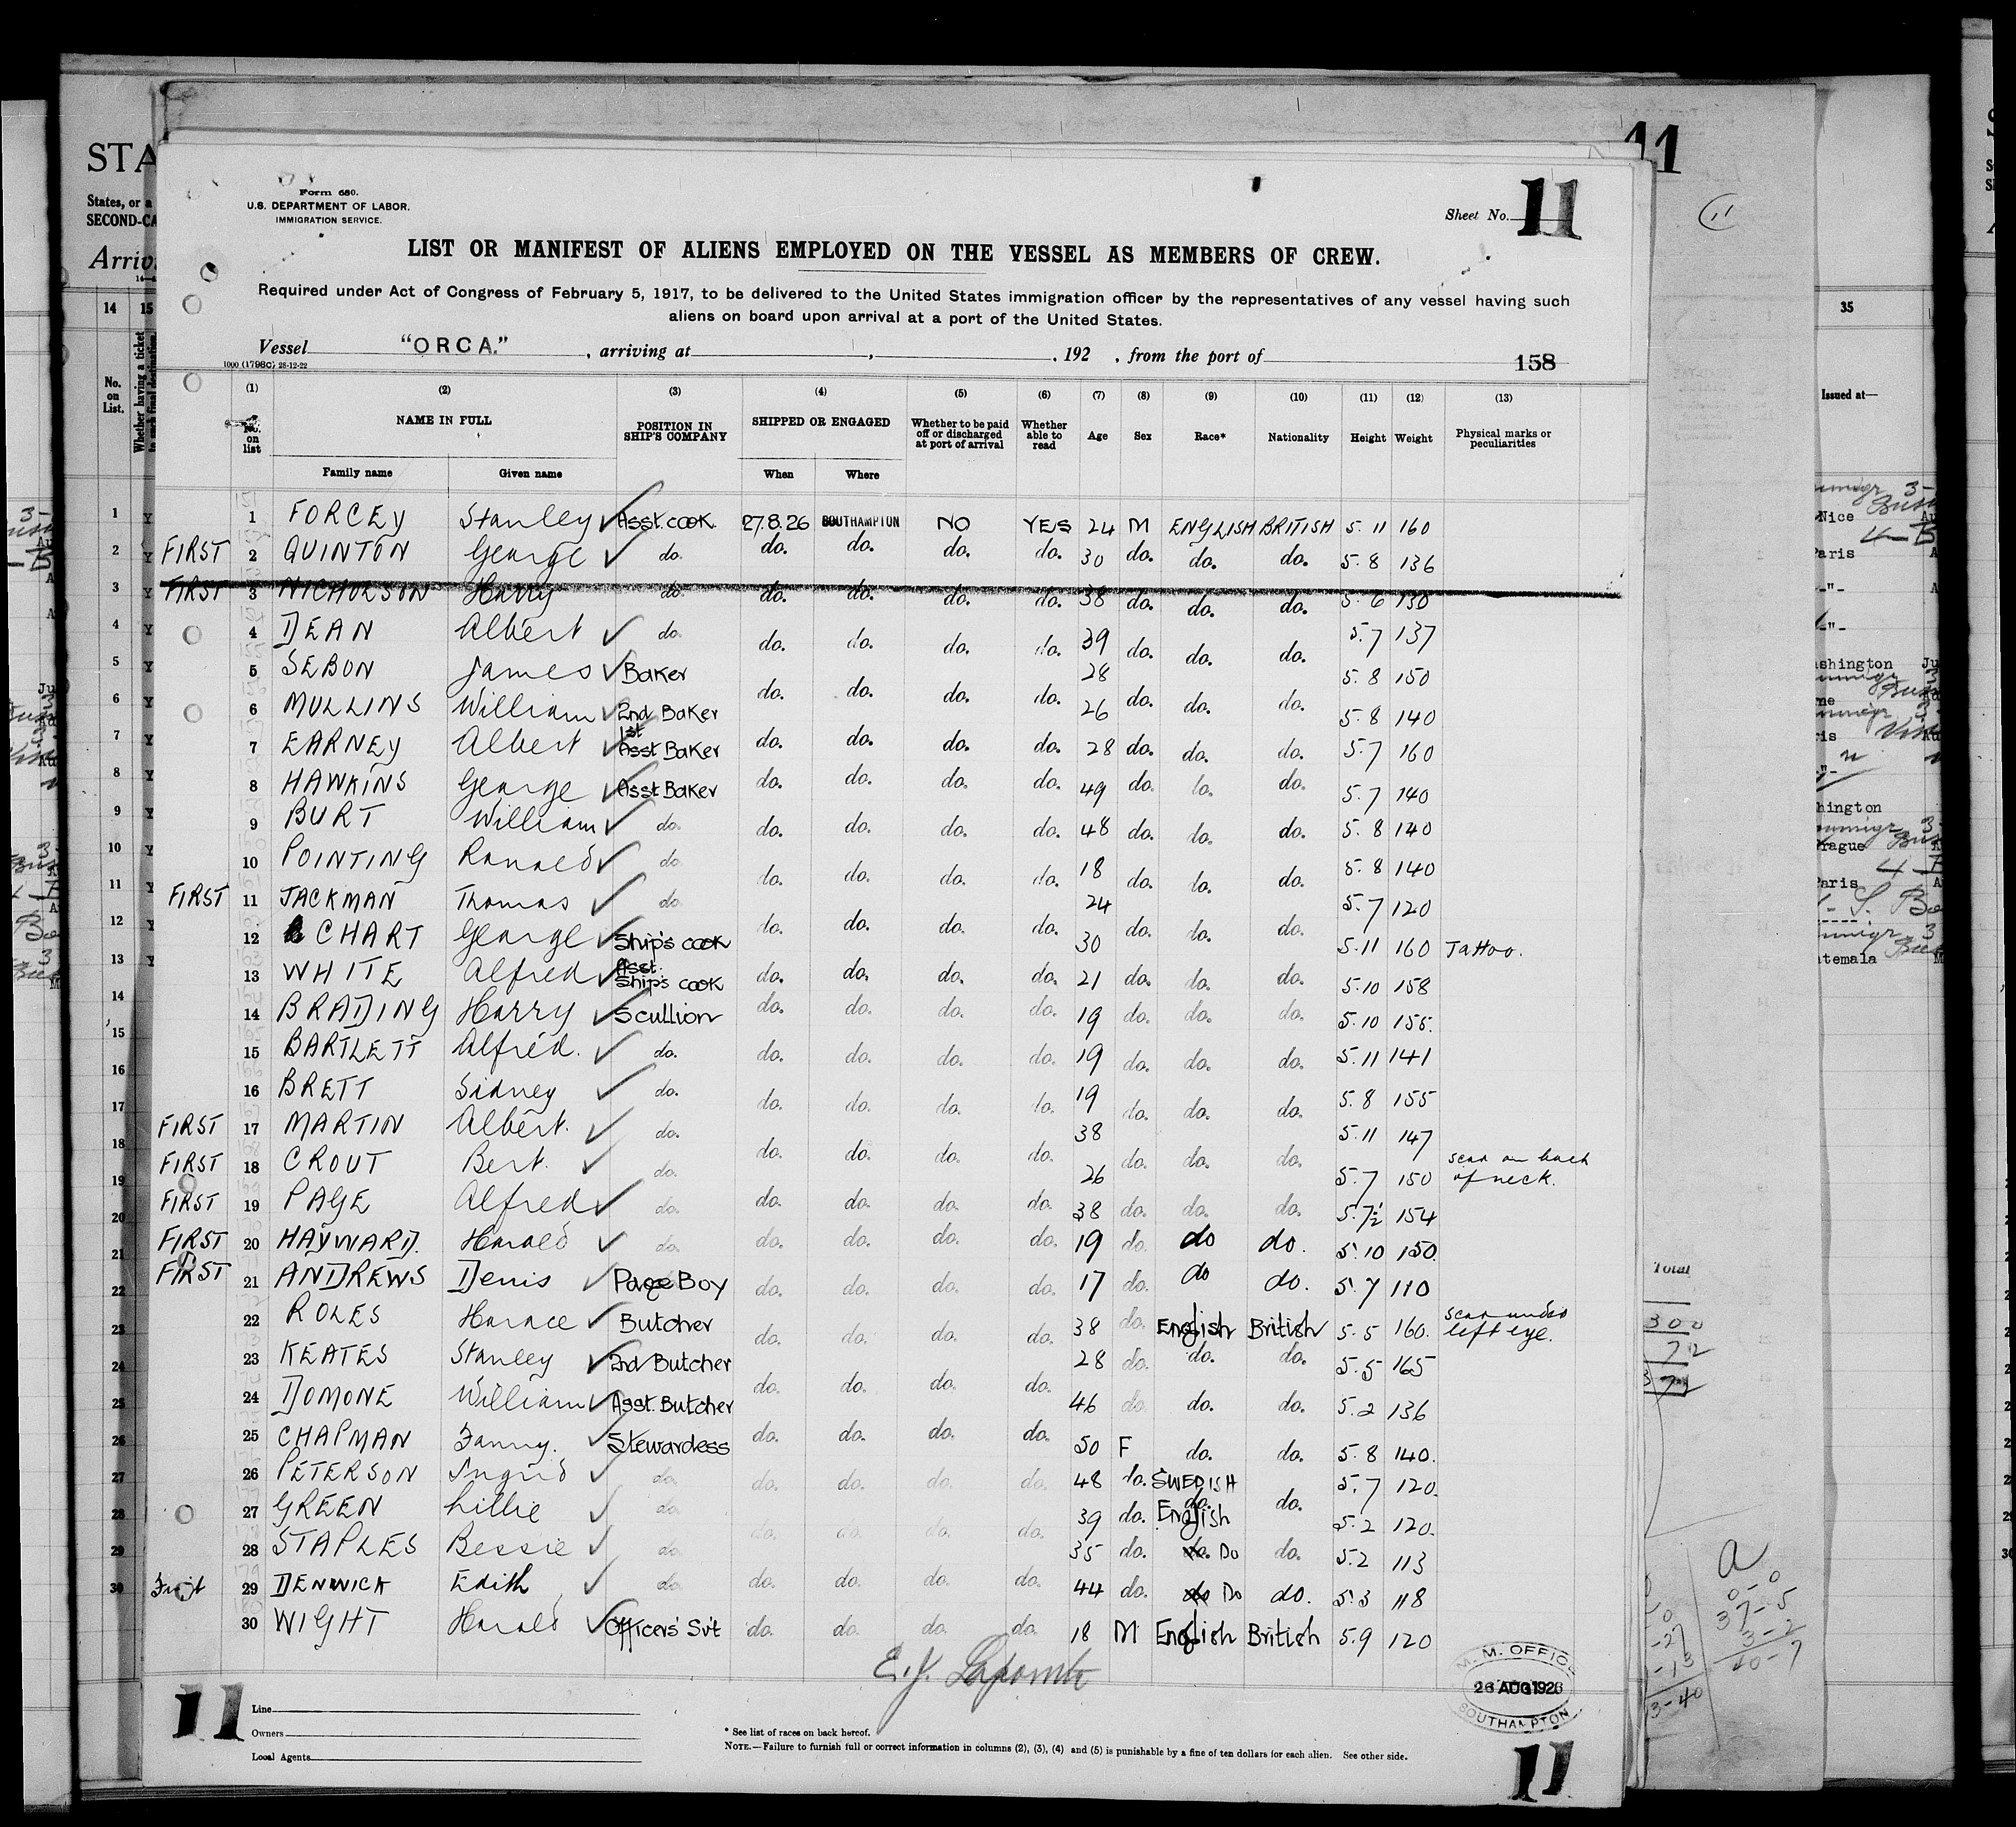 Form 680.
U.S. DEPARTMENT OF LABOR.
IMMIGRATION SERVICE.
Sheet No. 11
LIST OR MANIFEST OF ALIENS EMPLOYED ON THE VESSEL AS MEMBERS OF CREW.
Required under Act of Congress of February 5, 1917, to be delivered to the United States immigration officer by the representatives of any vessel having such
aliens on board upon arrival at a port of the United States.
Vessel "ORCA." , arriving at , , 192 , from the port of 158
1000 (1798c) 28-12-22
(1) (2) (3) (4) (5) (6) (7) (8) (9) (10) (11) (12) (13)
No. on list NAME IN FULL POSITION IN SHIP'S COMPANY SHIPPED OR ENGAGED Whether to be paid off or discharged at port of arrival Whether able to read Age Sex Race* Nationality Height Weight Physical marks or peculiarities
Family name Given name When Where
1 FORCEY Stanley Asst. cook. 27.8.26 SOUTHAMPTON NO YES 24 M ENGLISH BRITISH 5.11 160
FIRST 2 QUINTON George do. do. do. do. do. 30 do. do. do. 5.8 136
FIRST 3 NICHOLSON Harry do. do. do. do. do. 38 do. do. do. 5.6 130
4 DEAN Albert do. do. do. do. do. 39 do. do. do. 5.7 137
5 SEBON James Baker 28 5.8 150
6 MULLINS William 2nd Baker do. do. do. do. 26 do. do. do. 5.8 140
7 EARNEY Albert 1st Asst Baker do. do. do. do. 28 do. do. do. 5.7 160
8 HAWKINS George Asst Baker do. do. do. do. 49 do. do. do. 5.7 140
9 BURT William do. do. do. do. do. 48 do. do. do. 5.8 140
10 POINTING Ronald do. do. do. do. do. 18 do. do. do. 5.8 140
FIRST 11 JACKMAN Thomas do. 24 5.7 120
12 CHART George Ship's cook do. do. do. do. 30 do. do. do. 5.11 160 Tattoo.
13 WHITE Alfred Asst. Ship's cook do. do. do. do. 21 do. do. do. 5.10 158
14 BRADING Harry Scullion do. do. do. do. 19 do. do. do. 5.10 155.
15 BARTLETT Alfred. do. do. do. do. do. 19 do. do. do. 5.11 141
16 BRETT Sidney do. do. do. do. do. 19 do. do. do. 5.8 155
FIRST 17 MARTIN Albert. do. 38 5.11 147
FIRST 18 CROUT Bert. do. do. do. do. do. 26 do. do. do. 5.7 150 scar on back of neck.
FIRST 19 PAGE Alfred do. do. do. do. do. 38 do. do. do. 5.7½ 154
FIRST 20 HAYWARD. Harold do. do. do. do. do. 19 do. do do. 5.10 150
FIRST 21 ANDREWS Denis Page Boy do. do. do. do. 17 do. do do. 5.7 110
22 ROLES Horace Butcher do. do. do. do. 38 do. English British 5.5 160. scar under left eye.
23 KEATES Stanley 2nd Butcher 28 do. do. do. 5.5 165
24 DOMONE William Asst. Butcher do. do. do. do. 46 do. do. do. 5.2 136
25 CHAPMAN Fanny. Stewardess do. do. do. do. 50 F do. do. 5.8 140.
26 PETERSON Ingrid do. do. do. do. do. 48 do. SWEDISH 5.7 120.
27 GREEN Lillie do. do. do. do. do. 39 do. do. English do. 5.2 120.
28 STAPLES Bessie do. 35 do. do. Do do. 5.2 113
29 DENWICK Edith do. do. do. do. do. 44 do. do Do do. 5.3 118
30 WIGHT Harold Officers' Svt do. do. do. do. 18 M English British 5.9 120
M. M. OFFICE
26 AUG 1926
SOUTHAMPTON
11
Line
Owners
Local Agents
* See list of races on back hereof.
NOTE.—Failure to furnish full or correct information in columns (2), (3), (4) and (5) is punishable by a fine of ten dollars for each alien. See other side.
11
STA
States, or a
SECOND-CA
Arriv
14 15
No. on List.
Whether having a ticket to such final destination
1
2
3
4
5
6
7
8
9
10
11
12
13
14
15
16
17
18
19
20
21
22
23
24
25
26
27
28
29
30
11
35
Issued at—
Nice
Paris
Total
300
72